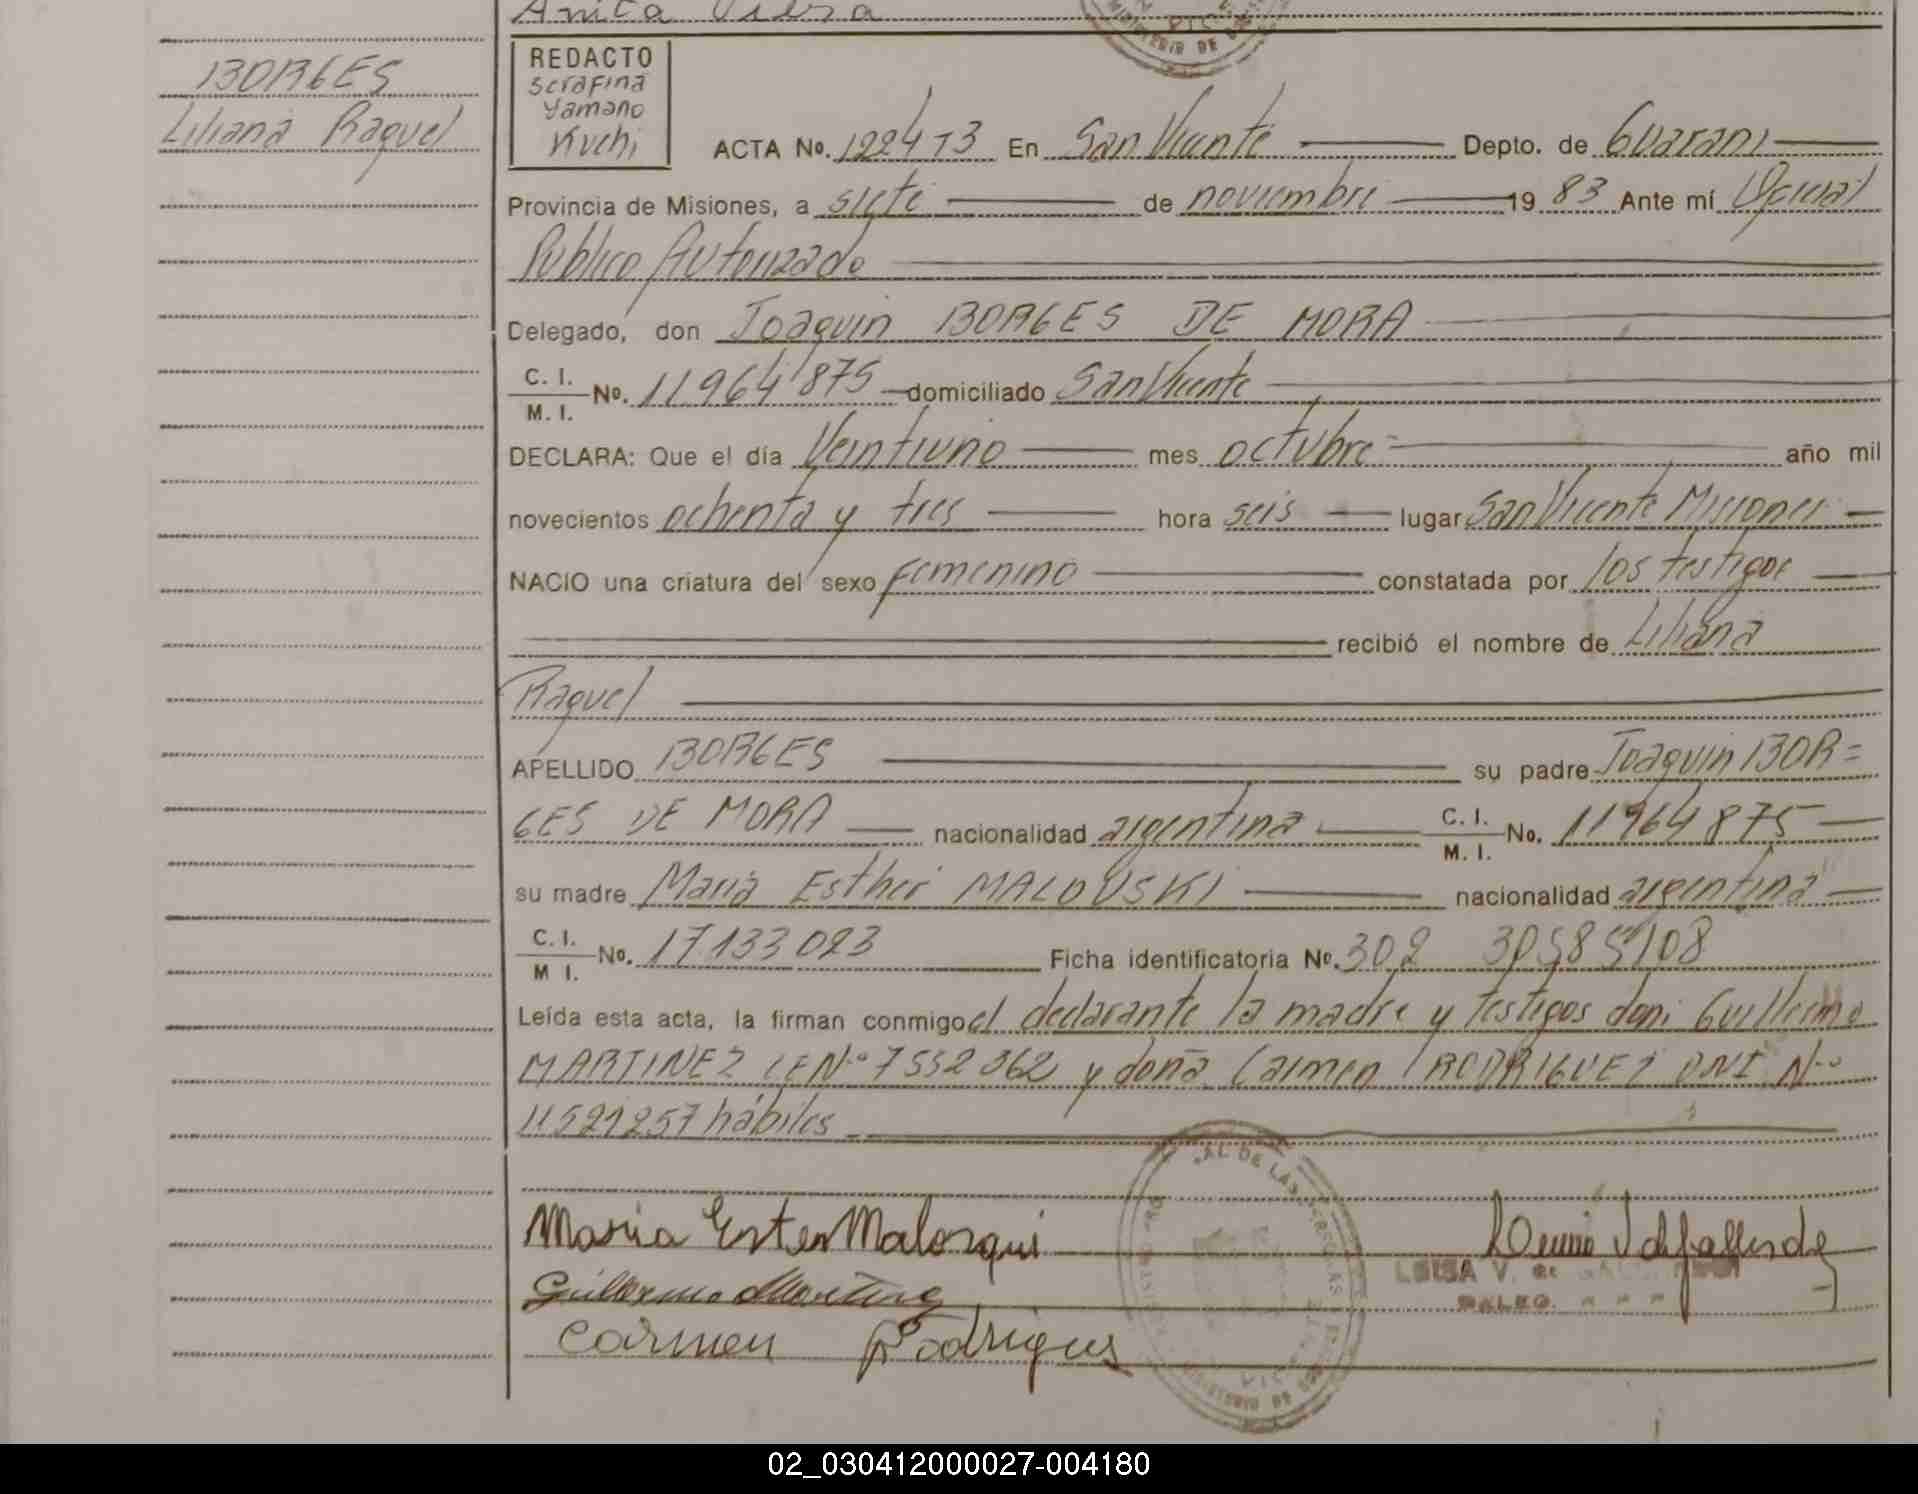 Anita Viera
BORGES
Liliana Raquel
REDACTO
Serafina
Yamano
Kuchi
ACTA No. 1224 T3 En San Vicente Depto. de Guarani
Provincia de Misiones, a siete de noviembre 1983 Ante mí Oficial
Publico Autorizado
Delegado, don Joaquin BORGES DE MORA
C. I.
M. I. No. 11964875 domiciliado San Vicente
DECLARA: Que el día Veintiuno mes octubre año mil
novecientos ochenta y tres hora seis lugar San Vicente Misiones
NACIO una criatura del sexo femenino constatada por los testigos
recibió el nombre de Liliana
Raquel
APELLIDO BORGES su padre Joaquin BOR=
GES DE MORA nacionalidad argentina C. I. M. I. No. 11964875
su madre Maria Esther MALOUSKI nacionalidad argentina
C. I.
M I. No. 17133023 Ficha identificatoria No. 302 30585108
Leída esta acta, la firman conmigo el declarante la madre y testigos don: Guillermo
MARTINEZ LE Nº 7532362 y doña Carmen RODRIGUEZ DNI Nº
11521257 hábiles
Maria Ester Malosqui
Guillermo Martinez
Carmen Rodrigues
LUISA V.
AL DE LAS PERSONAS
MINISTERIO DE
02_030412000027-004180